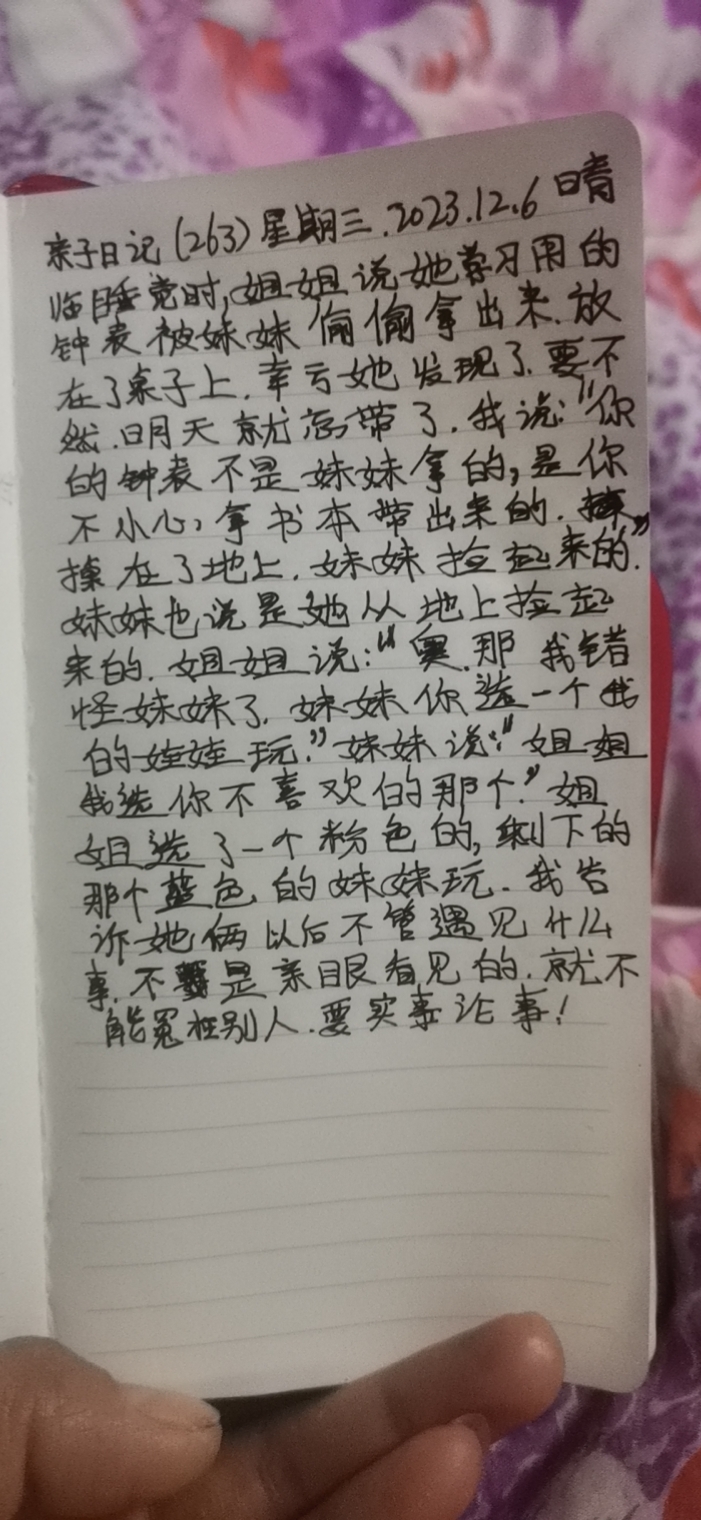 亲子日记(263)星期三.2023.12.6 晴
临睡觉时,姐姐说她学习用的
钟表被妹妹偷偷拿出来.放
在了桌子上.幸亏她发现了.要不
然.明天就忘带了.我说:"你
的钟表不是妹妹拿的,是你
不小心,拿书本带出来的.
掉在了地上.妹妹捡起来的."
妹妹也说是她从地上捡起
来的.姐姐说:"奥.那我错
怪妹妹了.妹妹你选一个我
的娃娃玩."妹妹说:"姐姐
我选你不喜欢的那个."姐
姐选了一个粉色的,剩下的
那个蓝色的妹妹玩.我告
诉她俩以后不管遇见什么
事.不是亲眼看见的.就不
能冤枉别人.要实事论事!